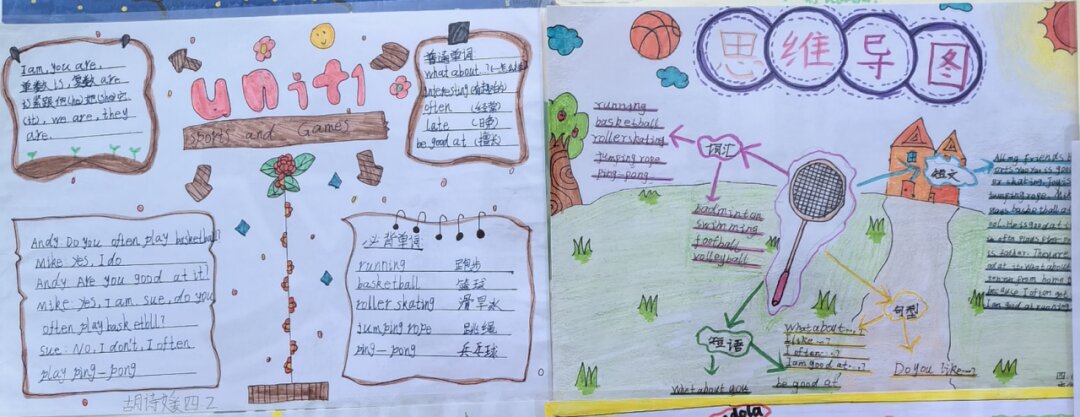 I am, you are,
单数 is, 复数 are
is 紧跟他(he)她(she)它
(it), we are, they
are.
unit1
sports and Games
普通单词
what about...?(...怎么样)
interesting (有趣的)
often (经常)
late (日考)
be good at (擅长)
Andy Do you often play basketball
Mike: Yes, I do
Andy Are you good at it?
Mike: Yes, I am Sue, do you
often play basketbll?
Sue: No, I don't, I often
play ping-pong
必背单词
running 跑步
basketball 篮球
roller skating 滑旱冰
jumping rope 跳绳
ping-pong 乒乓球
胡诗媛 四.2
思维导图
running
basketball
rollerskating
jumping rope
ping-pong
词汇
badminton
swimming
football
volleyball
短文
All my friends
jumping rope
basketball
He is good at
often plays
is father. They are
at it. what about
because I often
I am good at running
句型
What about...?
I like...?
I often...?
I am good at...?
Do you like...?
短语
what about you
be good at
四.